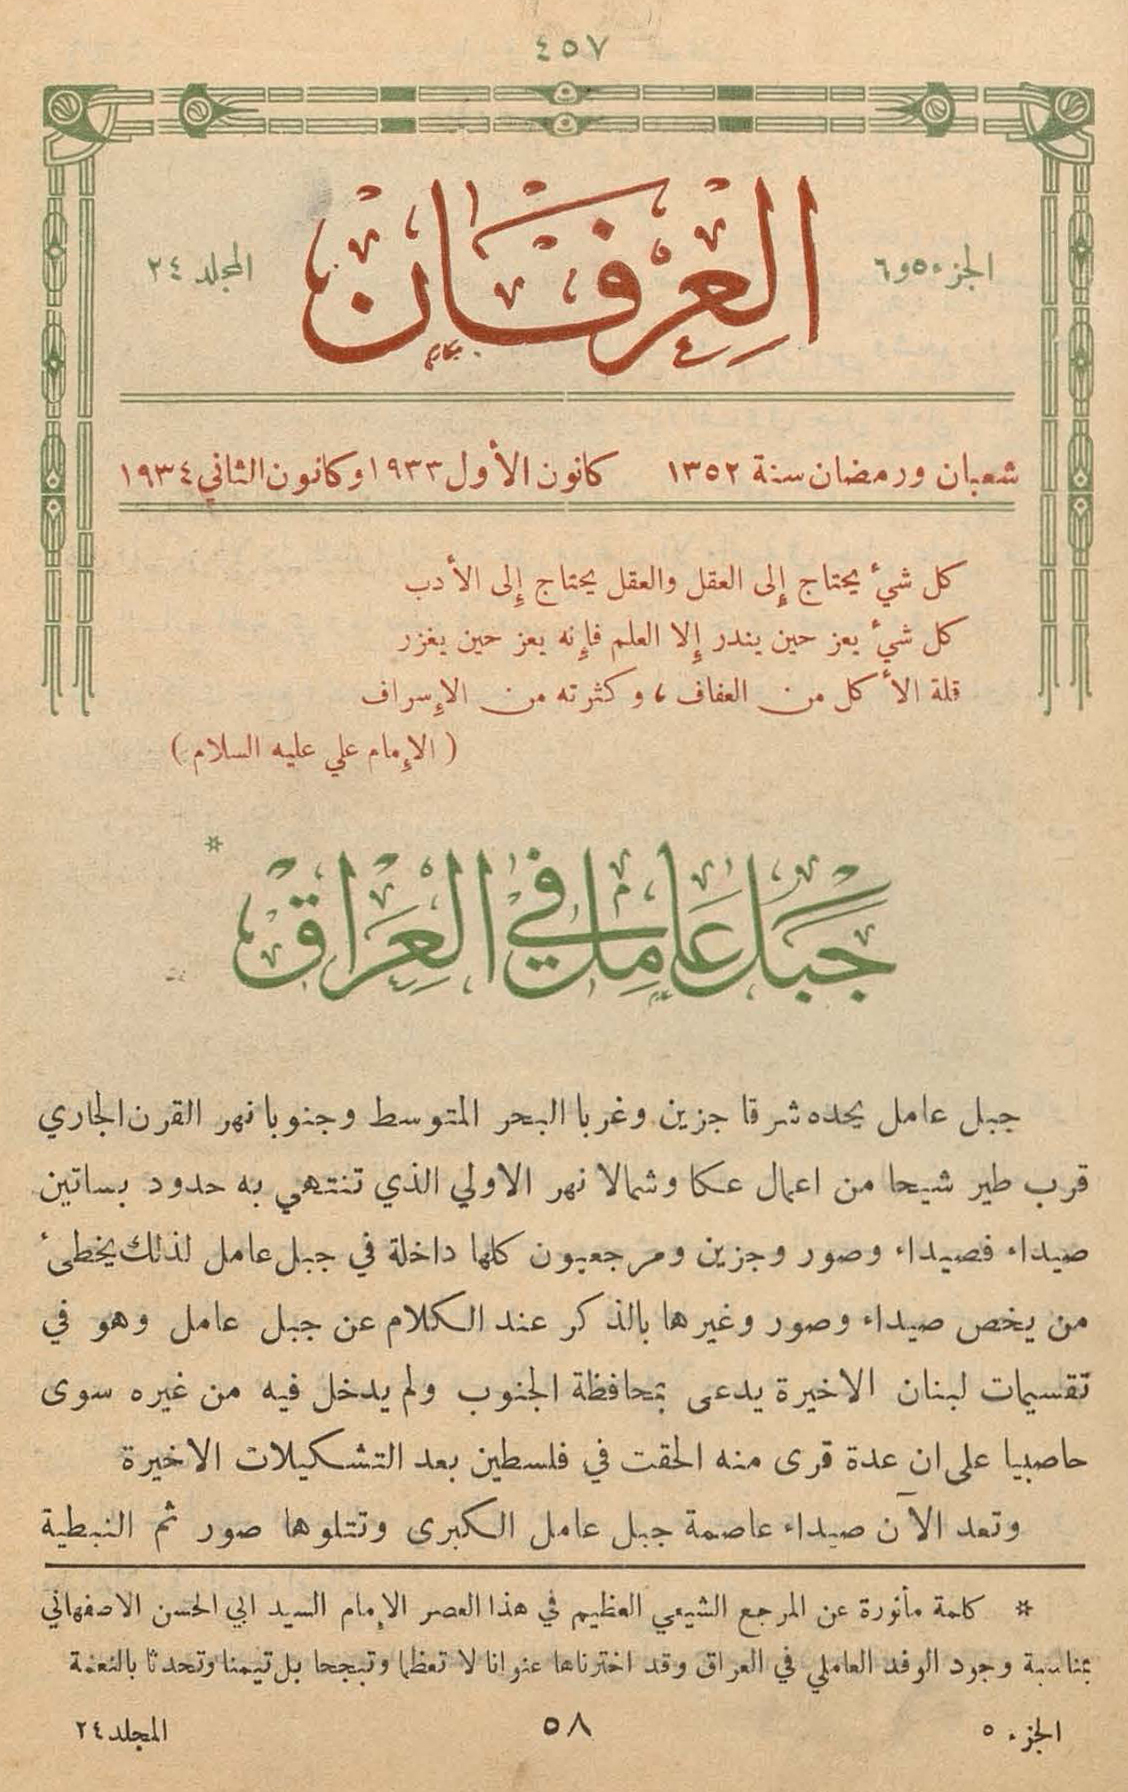 ٤٥٧
الجزء ٥ و ٦
العرفان
المجلد ٢٤
شعبان ورمضان سنة ١٣٥٢ كانون الأول ١٩٣٣ وكانون الثاني ١٩٣٤
كل شيءٌ يحتاج إِلى العقل والعقل يحتاج إِلى الأدب
كل شيءٌ يعز حين يندر إِلا العلم فإِنه يعز حين يغزر
قلة الأكل من العفاف ، وكثرته من الإِسراف
( الإِمام علي عليه السلام )
جبل عامل في العراق *
جبل عامل يحده شرقا جزين وغربا البحر المتوسط وجنوبا نهر القرن الجاري
قرب طير شيحا من اعمال عكا وشمالا نهر الاولي الذي تنتهي به حدود بساتين
صيداء فصيداء وصور وجزين ومرجعيون كلها داخلة في جبل عامل لذلك يخطئ
من يخص صيداء وصور وغيرها بالذكر عند الكلام عن جبل عامل وهو في
تقسيمات لبنان الاخيرة يدعى بمحافظة الجنوب ولم يدخل فيه من غيره سوى
حاصبيا على ان عدة قرى منه الحقت في فلسطين بعد التشكيلات الاخيرة
وتعد الآن صيداء عاصمة جبل عامل الكبرى وتتلوها صور ثم النبطية
* كلمة مأثورة عن المرجع الشيعي العظيم في هذا العصر الإمام السيد ابي الحسن الاصفهاني
بمناسبة وجود الوفد العاملي في العراق وقد اخترناها عنوانا لا تعظما وتبجحا بل تيمنا وتحدثا بالنعمة
الجزء ٥
٥٨
المجلد ٢٤